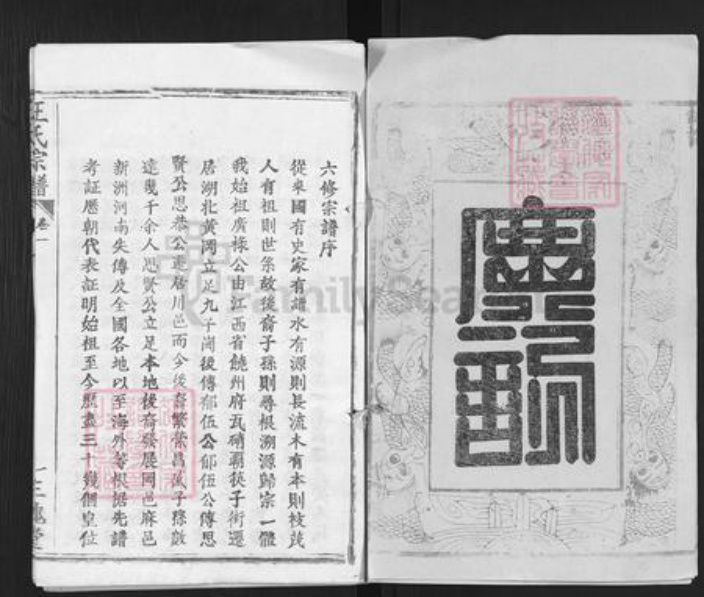 六修宗譜序
從來國有史家有譜水有源則長流木有本則枝茂
人有祖則世系故後裔子孫則尋根溯源歸宗一體
我始祖廣椽公由江西省饒州府瓦硝覇筷子街遷
居湖北黄岡立足九子崗後傳郁伍公郁伍公傳思
賢公思恭公遷居川邑而今後裔繁榮昌盛子孫敨
達幾千余人思賢公立足本地後裔發展岡邑麻邑
新洲河南失傳及全國各地以至海外等根据先譜
考証歷朝代表証明始祖至今歷盡三十幾個皇位
汪氏宗譜
卷一
三槐堂
FamilySearch